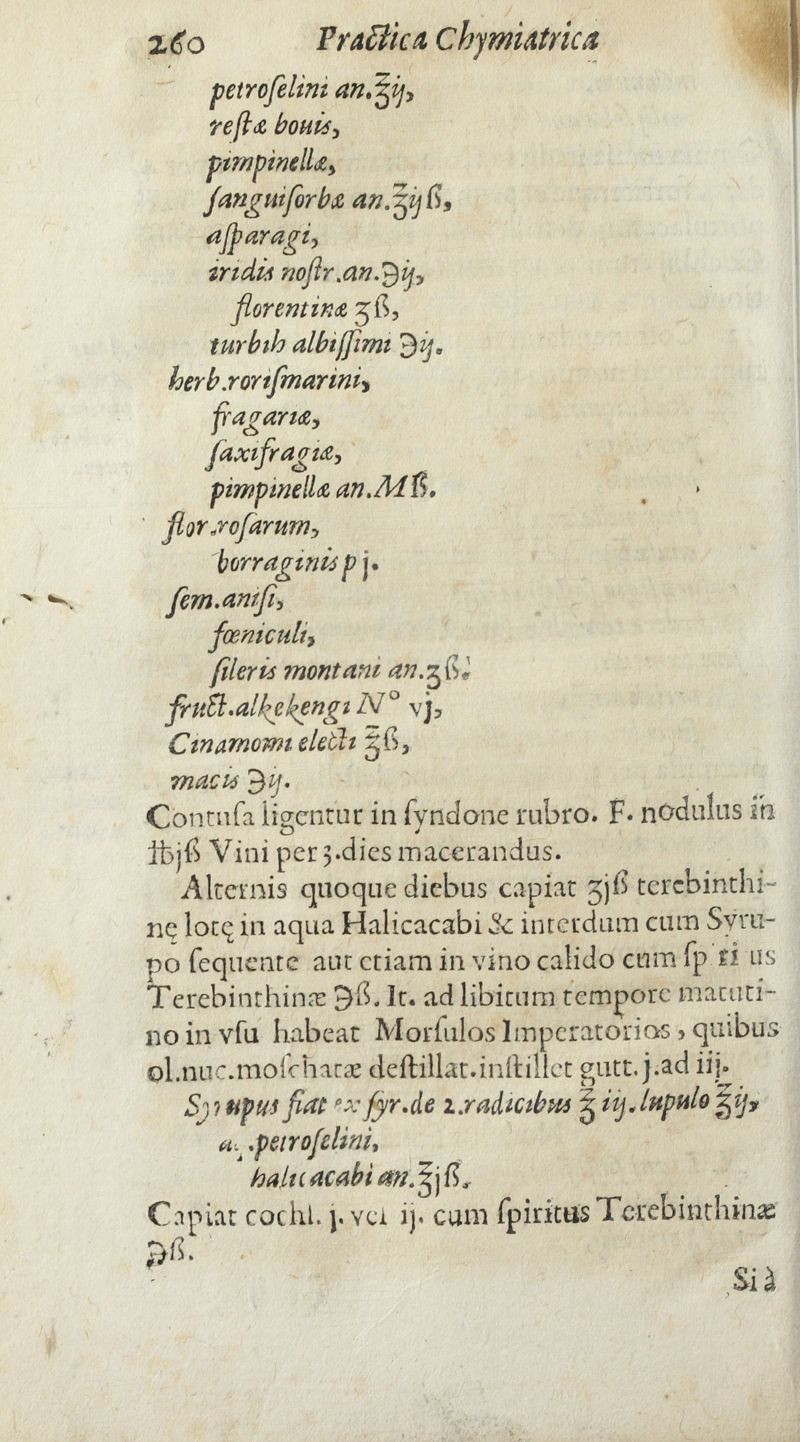 260 Practica Chymiatrica
petroſelini an.℥ij,
reſtæ bouis,
pimpinellæ,
ſanguiſorbæ an.℥ijß,
aſparagi,
iridis noſtr.an.℈ij,
florentinæ ʒß,
turbih albiſſimi ℈ij.
herb.roriſmarini,
fragariæ,
ſaxifragiæ,
pimpinellæ an.Mß.
flor.roſarum,
borraginis p j.
ſem.aniſi,
fœniculi,
ſileris montani an.ʒß.
fruct.alkekengi N° vj,
Cinamomi electi ℥ß,
macis ℈ij.
Contuſa ligentur in ſyndone rubro. F. nodulus in
℔jß Vini per 3.dies macerandus.
Alternis quoque diebus capiat ʒjß terebinthi-
nę lotę in aqua Halicacabi & interdum cum Syru-
po ſequente aut etiam in vino calido cum ſp ri us
Terebinthinæ ℈ß. It. ad libitum tempore matuti-
no in vſu habeat Morſulos Imperatorios, quibus
ol.nuc.moſchatæ deſtillat.inſtillet gutt.j.ad iij.
Syrupus fiat ex ſyr.de 2.radicibus ℥ iij. lupulo ℥ij,
a .petroſelini,
halicacabi an.℥jß.
Capiat cochl. j. vel ij. cum ſpiritus Terebinthinæ
℈ß.
Si à